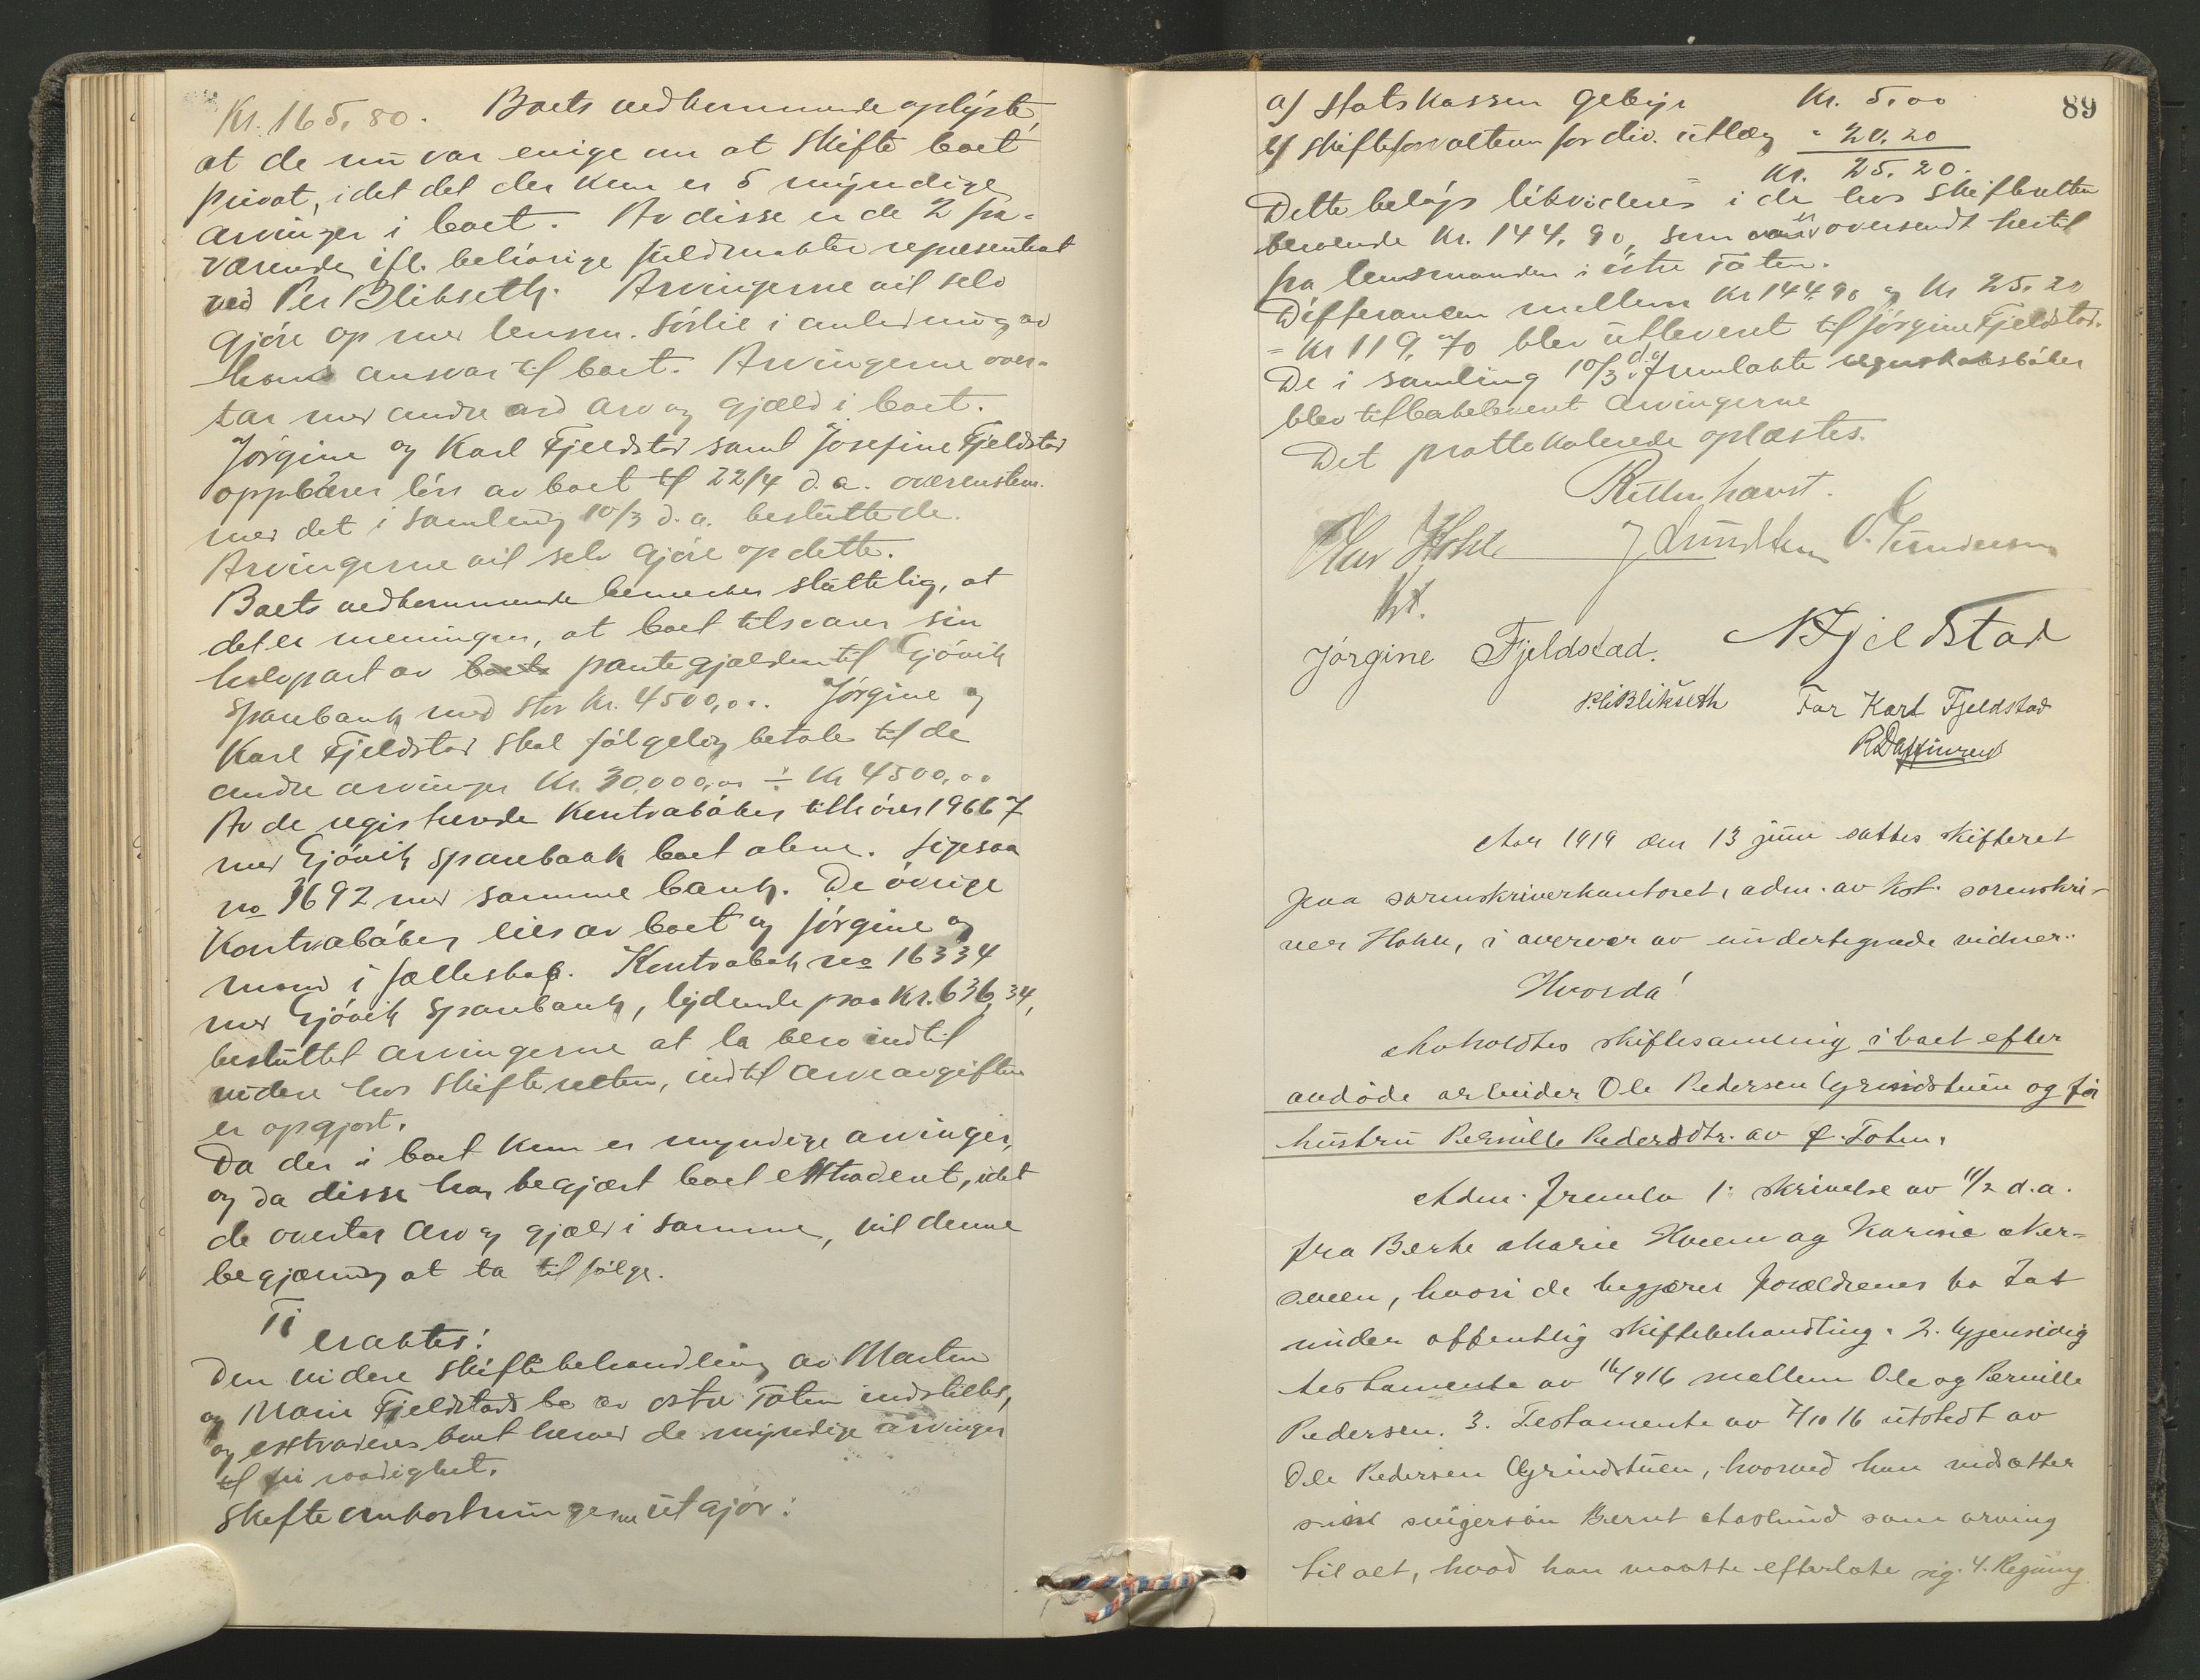 Kr. 165,80. Boets vedkommende oplyste,
at de nu var enige om at skifte boet
privat, idet det der kun er 5 myndige
arvinger i boet. Av disse er de 2 fra-
værende ifl. behørige fuldmakter representert
ved Per Blikseth. Arvingerne vil selv
gjøre op med lensm. Sørlie i anledning av
hans ansvar til boet. Arvingerne over-
tar med andre ord arv og gjæld i boet.
Jørgine og Karl Fjeldstad samt Josefine Fjeldstad
oppbærer løn av boet til 22/4 d.a. overenstem.
med det i samling 10/3 d.a. besluttede.
Arvingerne vil selv gjøre op dette.
Boets vedkommende bemerker sluttelig, at
det er meningen, at boet tilsvarer sin
halvpart av boets pantegjælden til Gjøvik
Sparebank med stor Kr. 4500,00. Jørgine og
Karl Fjeldstad skal følgelig betale til de
andre arvinger Kr. 30,000,00 ÷ Kr 4500,00
Av de registrerede Kontrabøker tilhører 19667
med Gjøvik Sparebank boet alene. Ligesaa
no 3692 med samme bank. De øvrige
Kontrabøker eies av boet og Jørgine og
mand i fællesskap. Kontrabok no 16334
med Gjøvik Sparebank, lydende paa Kr. 636,34,
besluttet arvingerne at la bero indtil
videre hos skifteretten, indtil arveavgiften
er opgjort.
Da der i boet kun er myndige arvinger,
og da disse har begjært boet extradert, idet
de overtar arv og gjæld i samme, vil denne
begjæring at ta tilfølge.
Ti
eraktes:
Den videre skiftebehandling av Marten
og Marie Fjeldstads bo av østre Toten indstilles,
og extraderes boet herved de myndige arvinger
til fri raadighet.
Skifteomkostningerne utgjør:
89
a) Statskassen gebyr Kr. 5,00
b) Skifteforvalteren for div. utlæg " 20,20
Kr. 25,20.
Dette beløp likvideres i de hos skifteretten
beroende Kr. 144,90, som var oversendt hertil
fra lensmanden i østre Toten.
Differansen mellem Kr 144,90 og Kr 25,20
= Kr 119,70 blev utlevert til Jørgine Fjeldstad.
De i samling 10/3 d.a. fremlakte regnskabsbøker
blev tilbakelevert arvingerne
Det prottekolerede oplæstes.
Retten hævet.
Olav Hohle J Lundsten O. Gundersen
kst.
Jørgine Fjeldstad. N Fjeldstad
P. Blikseth For Karl Fjeldstad

Aar 1919 den 13 juni sattes skifteret
paa sorenskriverkontoret, adm. av kst. sorenskri-
ver Hohle, i overvær av undertegnede vidner.
Hvorda!
Avholdtes skiftesamling i boet efter
avdøde arbeider Ole Pedersen Grindstuen og før
hustru Pernille Pedersdtr. av ø. Toten.
Adm. fremla 1. skrivelse av 11/2 d.a.
fra Berte Marie Hveem og Karine Aker-
sveen, hvori de begjærer forældrenes bo tat
under offentlig skiftebehandling. 2. Gjensidig
testamente av 16/9 16 mellem Ole og Pernille
Pedersen. 3. Testamente av 7/10 16 utstedt av
Ole Pedersen Grindstuen, hvorved han indsætter
sin svigersøn Bernt Aaslund som arving
til alt, hvad han maatte efterlate sig. 4. Regning